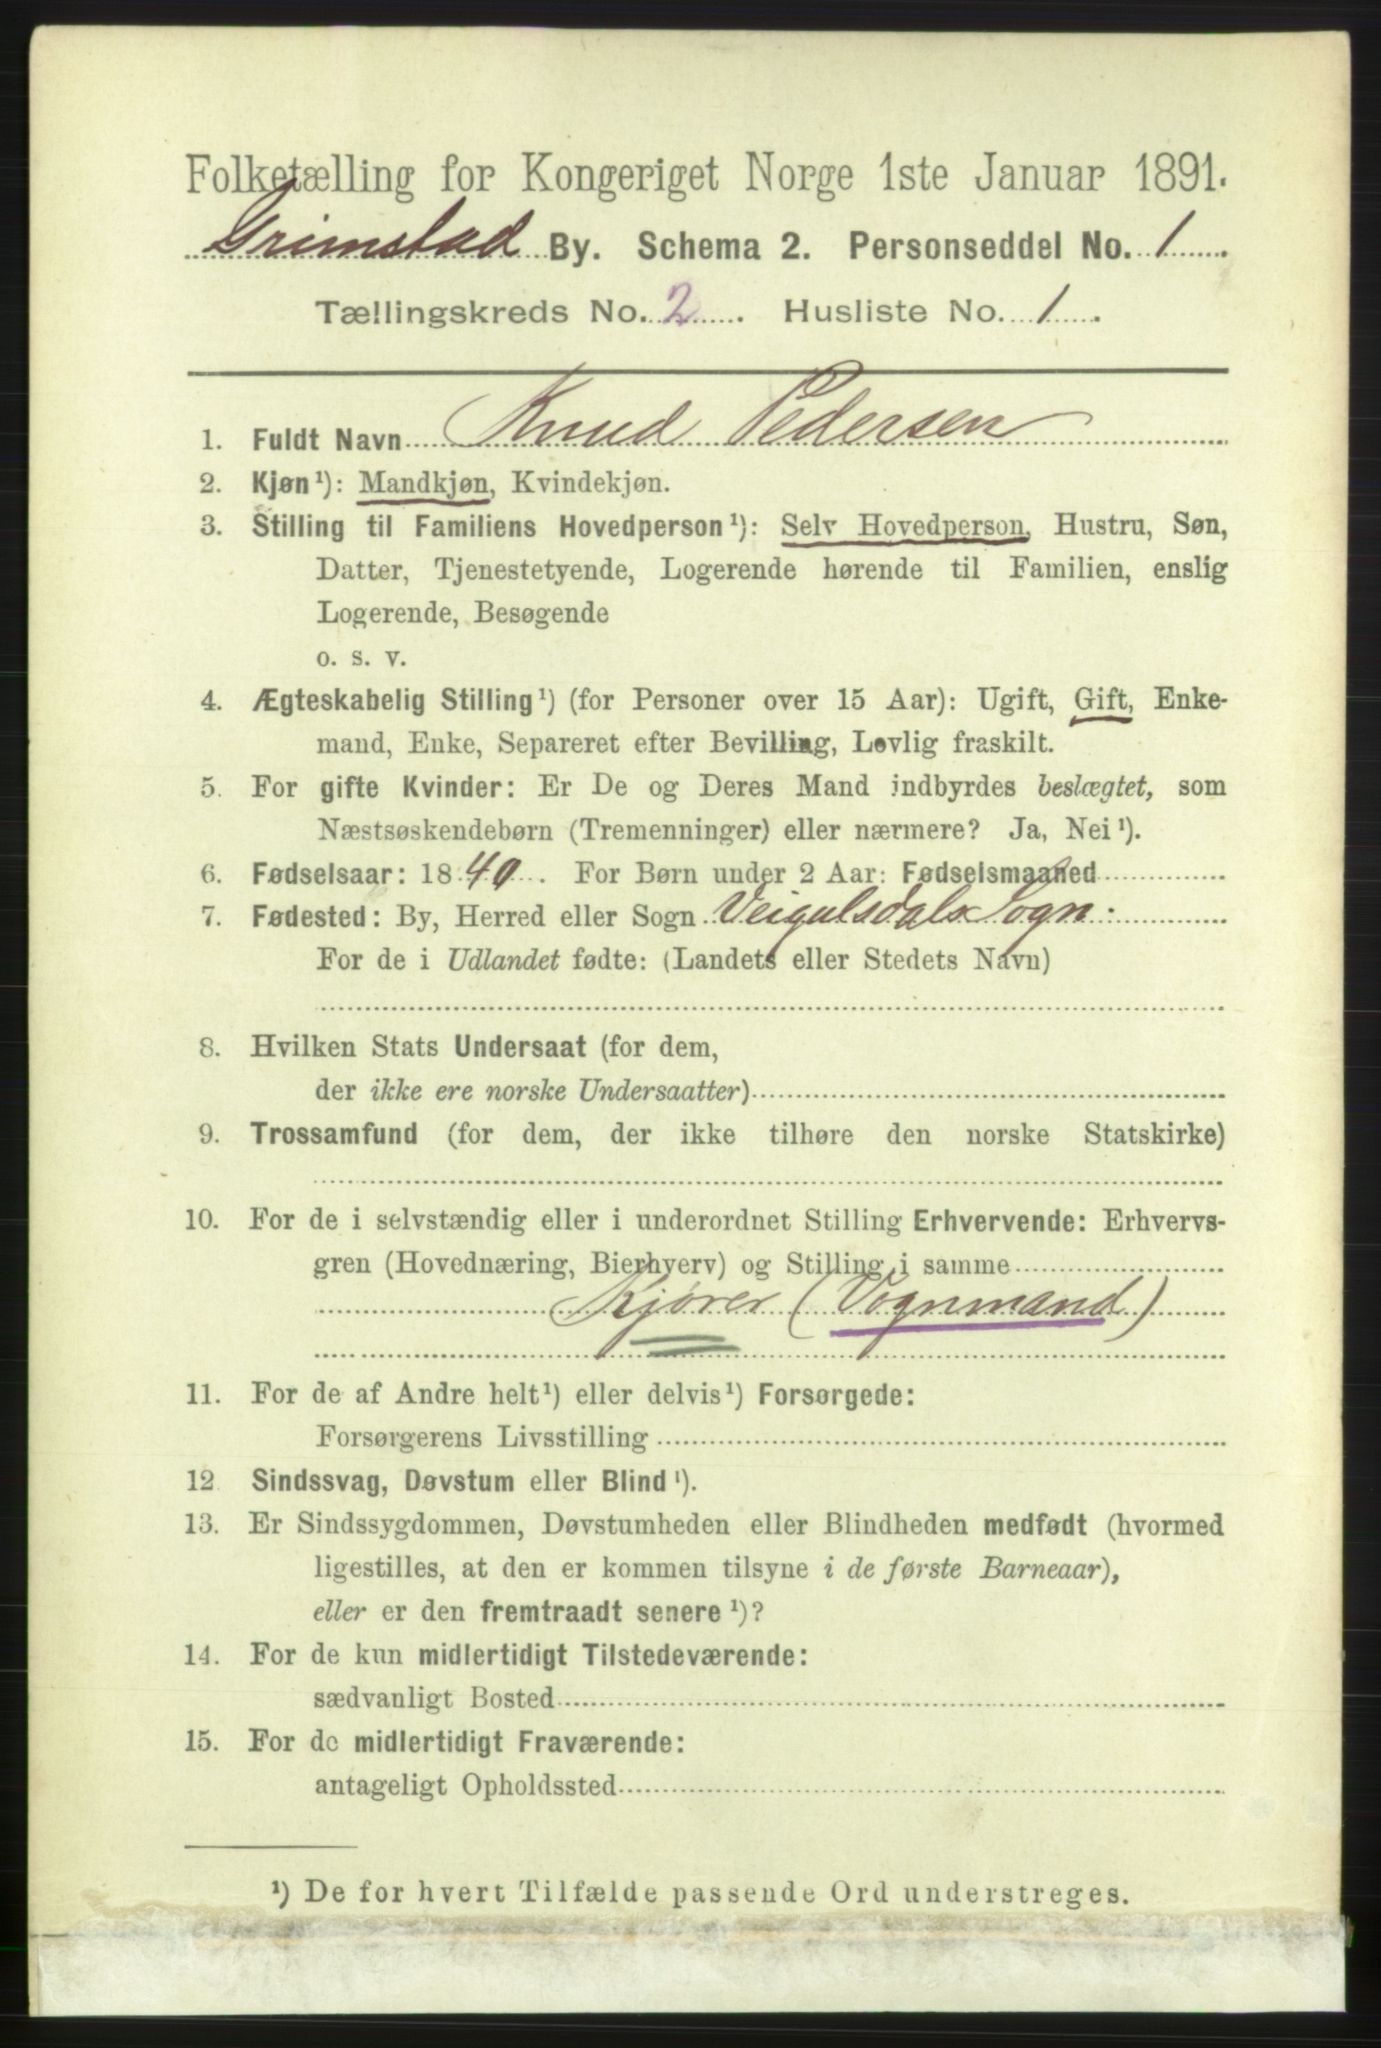 Folketælling for Kongeriget Norge 1ste Januar 1891.
Grimstad By. Schema 2. Personseddel No. 1
Tællingskreds No. 2. Husliste No. 1.
1. Fuldt Navn Knud Pedersen
2. Kjøn¹): Mandkjøn, Kvindekjøn.
3. Stilling til Familiens Hovedperson¹): Selv Hovedperson, Hustru, Søn,
Datter, Tjenestetyende, Logerende hørende til Familien, enslig
Logerende, Besøgende
o. s. v.
4. Ægteskabelig Stilling¹) (for Personer over 15 Aar): Ugift, Gift, Enke-
mand, Enke, Separeret efter Bevilling, Lovlig fraskilt.
5. For gifte Kvinder: Er De og Deres Mand indbyrdes beslægtet, som
Næstsøskendebørn (Tremenninger) eller nærmere? Ja, Nei¹).
6. Fødselsaar: 1840. For Børn under 2 Aar: Fødselsmaaned
7. Fødested: By, Herred eller Sogn Veigulsdals Sogn.
For de i Udlandet fødte: (Landets eller Stedets Navn)
8. Hvilken Stats Undersaat (for dem,
der ikke ere norske Undersaatter)
9. Trossamfund (for dem, der ikke tilhøre den norske Statskirke)
10. For de i selvstændig eller i underordnet Stilling Erhvervende: Erhvervs-
gren (Hovednæring, Bierhverv) og Stilling i samme
Kjører (Vognmand)
11. For de af Andre helt¹) eller delvis¹) Forsørgede:
Forsørgerens Livsstilling
12 Sindssvag, Døvstum eller Blind¹).
13. Er Sindssygdommen, Døvstumheden eller Blindheden medfødt (hvormed
ligestilles, at den er kommen tilsyne i de første Barneaar),
eller er den fremtraadt senere¹)?
14. For de kun midlertidigt Tilstedeværende:
sædvanligt Bosted
15. For de midlertidigt Fraværende:
antageligt Opholdssted
¹) De for hvert Tilfælde passende Ord understreges.